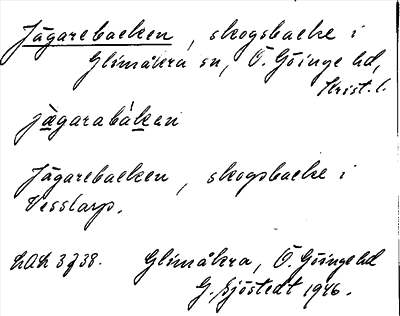 Jägarebacken, skogsbacke i
Glimåkra sn, Ö. Göinge hd,
Krist. l.
jägarabákan
Jägarebacken, skogsbacke i
Vesslarp.
LAL 3738. Glimåkra, Ö. Göinge hd
G. Sjöstedt 1946.